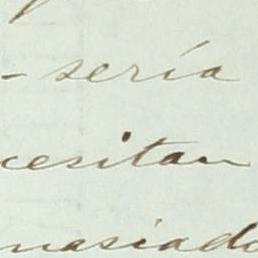 - sería
cesitan
masiado